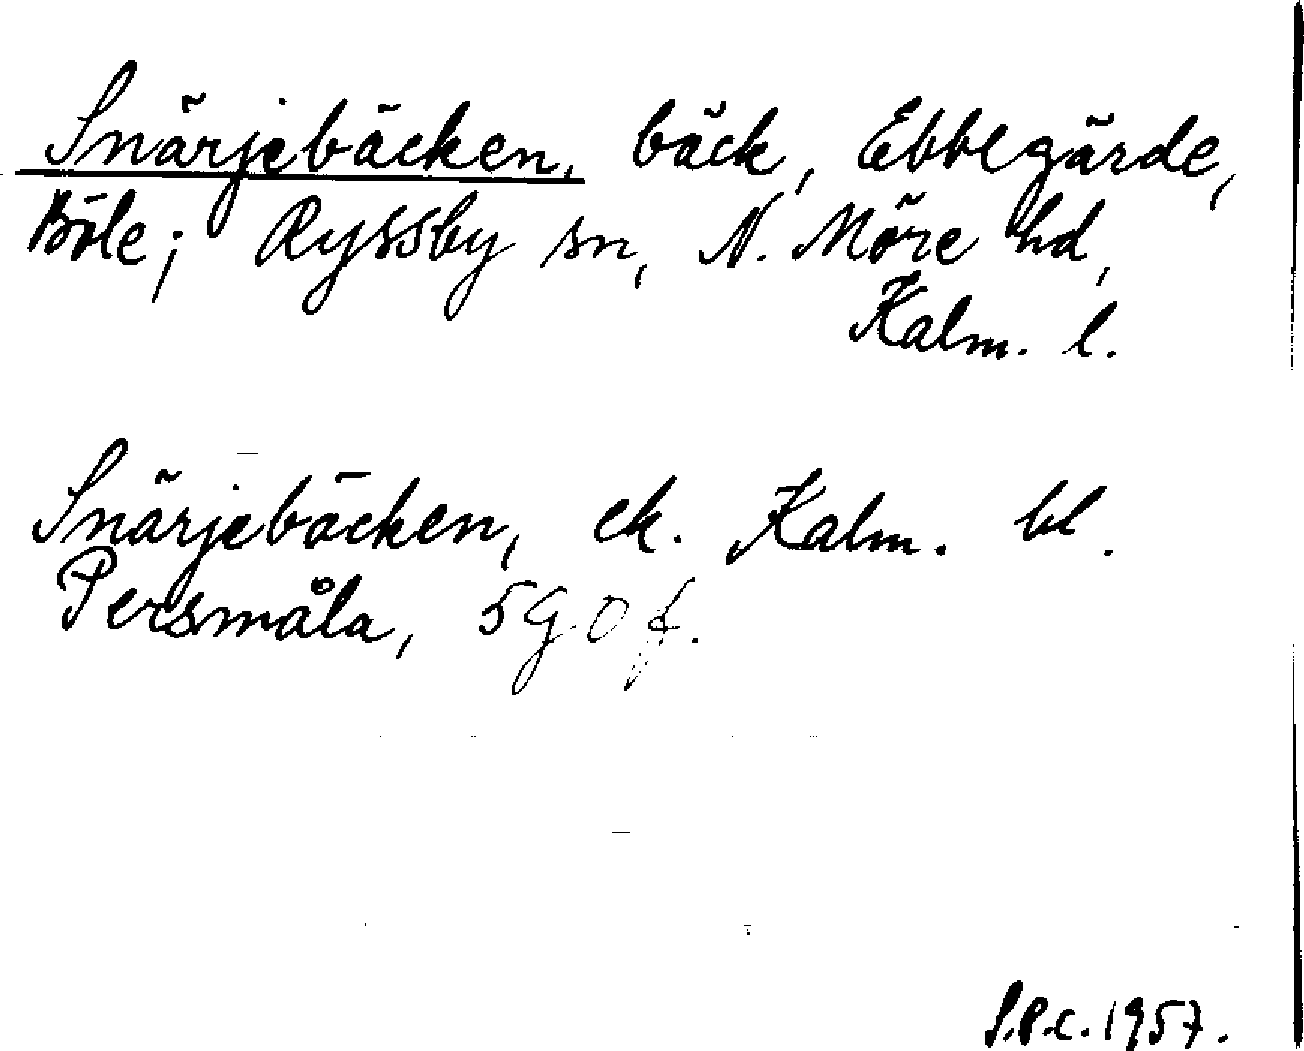 Snärjebäcken, bäck, Ebbegärde,
Böle; Ryssby sn, N. Möre hd,
Kalm. l.
Snärjebäcken, ek. Kalm. bl.
Persmåla, 5 g 0 f.
S.P.C. 1957.